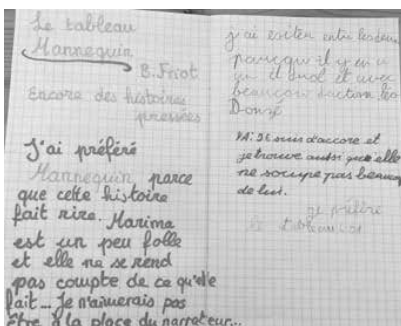 Le tableau
Mannequin
B. Friot
Encore des histoires
pressées
J'ai préféré
Mannequin parce
que cette histoire
fait rire. Marima
est un peu folle
et elle ne se rend
pas compte de ce qu'elle
fait... Je n'aimerais pas
être à la place du narrateur...
j'ai esiten entre les deux
parce qu'il y en a
un et avec
beaucoup d'action Léo
Donzé
je suis d'accore et
je trouve aussi que elle
ne socupe pas beaucoup
de lui.
je préfère
tableau